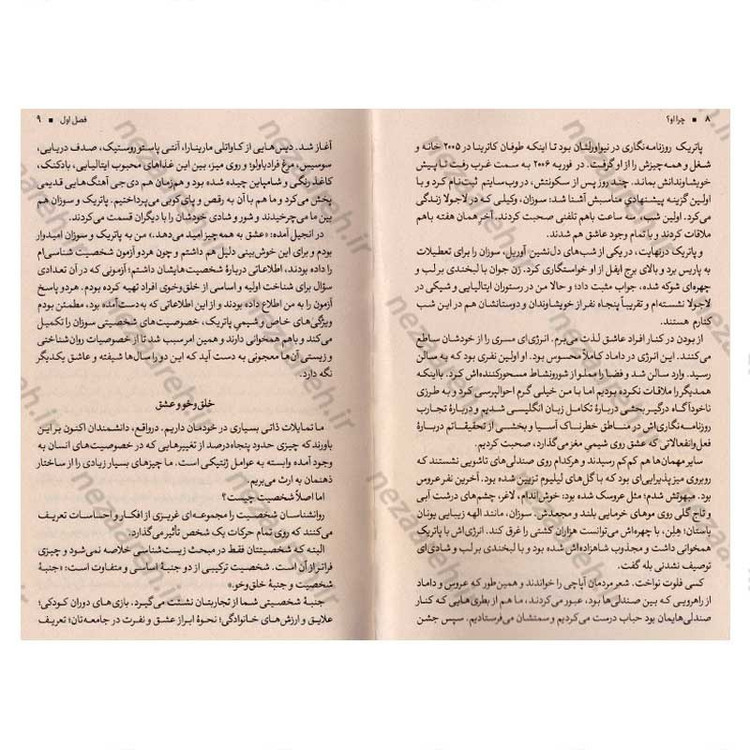 ۸ ■ چرا او؟
پاتریک روزنامه‌نگاری در نیواورلئان بود تا اینکه طوفان کاترینا در ۲۰۰۵ خانه و
شغل و همه‌چیزش را از او گرفت. در فوریه ۲۰۰۶ به سمت غرب رفت تا پیش
خویشاوندانش بماند. چند روز پس از سکونتش، در وب‌سایتم ثبت‌نام کرد و با
اولین گزینه پیشنهادیِ مناسبش آشنا شد: سوزان، وکیلی که در لاجولا زندگی
می‌کرد. اولین شب، سه ساعت باهم تلفنی صحبت کردند. آخر همان هفته باهم
ملاقات کردند و با تمام وجود عاشق هم شدند.
و پاتریک درنهایت، در یکی از شب‌های دل‌نشین آوریل، سوزان را برای تعطیلات
به پاریس برد و بالای برج ایفل از او خواستگاری کرد. زن جوان با لبخندی بر لب و
چهره‌ای شوکه شده، جواب مثبت داد؛ و حالا من در رستوران ایتالیایی و شیکی در
لاجولا نشسته‌ام و تقریباً پنجاه نفر از خویشاوندان و دوستانشان هم در این شب
کنارم هستند.
از بودن در کنار افراد عاشق لذت می‌برم. انرژی‌ای مسری را از خودشان ساطع
می‌کنند. این انرژی در داماد کاملاً محسوس بود. او اولین نفری بود که به سالن
رسید. وارد سالن شد و فضا را مملو از شور و نشاط مسحورکننده‌اش کرد. بااینکه
همدیگر را ملاقات نکرده بودیم اما با من خیلی گرم احوالپرسی کرد و به طرزی
ناخودآگاه درگیر بحثی دربارهٔ تکامل زبان انگلیسی شدیم و دربارهٔ تجارب
روزنامه‌نگاری‌اش در مناطق خطرناک آسیا و بخشی از تحقیقاتم دربارهٔ
فعل‌وانفعالاتی که عشق روی شیمیِ مغز می‌گذارد، صحبت کردیم.
سایر مهمان‌ها هم کم‌کم رسیدند و هرکدام روی صندلی‌های تاشویی نشستند که
روبروی میز پذیرایی‌ای بود که با گل‌های لیلیوم تزیین شده بود. آخرین نفر عروس
بود. مبهوتش شدم؛ مثل عروسک شده بود: خوش‌اندام، لاغر، چشم‌های درشت آبی
و تاج گلی روی موهای خرمایی بلند و مجعدش. سوزان، مانند الهه زیبایی یونان
باستان؛ هِلِن، با چهره‌اش می‌توانست هزاران کشتی را غرق کند. انرژی‌اش با پاتریک
همخوانی داشت و مجذوب شاهزاده‌اش شده بود و با لبخندی بر لب و شادی‌ای
توصیف نشدنی بله گفت.
کسی فلوت نواخت. شعر مردمان آپاچی را خواندند و همین‌طور که عروس و داماد
از راهرویی که بین صندلی‌ها بود، عبور می‌کردند، ما هم از بطری‌هایی که کنار
صندلی‌هایمان بود حباب درست می‌کردیم و سمتشان می‌فرستادیم. سپس جشن
فصل اول ■ ۹
آغاز شد. دیس‌هایی از کاواتلی مارینارا، آنتی پاستو روستیک، صدف دریایی،
سوسیس، مرغ فرادیاولو! و روی میز، بین این غذاهای محبوب ایتالیایی، بادکنک،
کاغذ رنگی و شامپاین چیده شده بود و هم‌زمان هم دی‌جی آهنگ‌هایی قدیمی
پخش می‌کرد و ما هم با آن به رقص و پای‌کوبی می‌پرداختیم. پاتریک و سوزان هم
بین ما می‌چرخیدند و شور و شادی خودشان را با دیگران قسمت می‌کردند.
در انجیل آمده: «عشق به همه‌چیز امید می‌دهد.» من به پاتریک و سوزان امیدوار
بودم و برای این خوش‌بینی دلیل هم داشتم و چون هردو آزمون شخصیت شناسی‌ام
را داده بودند، اطلاعاتی دربارهٔ شخصیت‌هایشان داشتم؛ آزمونی که در آن تعدادی
سؤال برای شناخت اولیه و اساسی از خلق‌وخوی افراد تهیه کرده بودم. هردو پاسخ
آزمون را به من اطلاع داده بودند و از این اطلاعاتی که به‌دست‌آمده بود، مطمئن بودم
ویژگی‌های خاص و شیمیِ پاتریک، خصوصیت‌های شخصیتی سوزان را تکمیل
می‌کند و باهم همخوانی دارند و همین امر سبب شد تا از خصوصیات روان‌شناختی
و زیستی آن‌ها معجونی به دست آید که این دو را سال‌ها شیفته و عاشق یکدیگر
نگه دارد.
خلق‌وخو و عشق
ما تمایلات ذاتی بسیاری در خودمان داریم. درواقع، دانشمندان اکنون بر این
باورند که چیزی حدود پنجاه‌درصد از تغییرهایی که در خصوصیت‌های انسان به
وجود آمده وابسته به عوامل ژنتیکی است. ما چیزهای بسیار زیادی را از ساختار
ذهنمان به ارث می‌بریم.
اما اصلاً شخصیت چیست؟
روانشناسان شخصیت را مجموعه‌ای غریزی از افکار و احساسات تعریف
می‌کنند که روی تمام حرکات یک شخص تأثیر می‌گذارد.
البته که شخصیتتان فقط در مبحث زیست‌شناسی خلاصه نمی‌شود و چیزی
فراتر از آن است. شخصیت ترکیبی از دو جنبهٔ اساسی و متفاوت است: «جنبهٔ
شخصیت و جنبهٔ خلق‌وخو.»
جنبهٔ شخصیتی شما از تجاربتان نشئت می‌گیرد. بازی‌های دوران کودکی؛
علایق و ارزش‌های خانوادگی؛ نحوهٔ ابراز عشق و نفرت در جامعه‌تان؛ تعریف
nezareh.ir